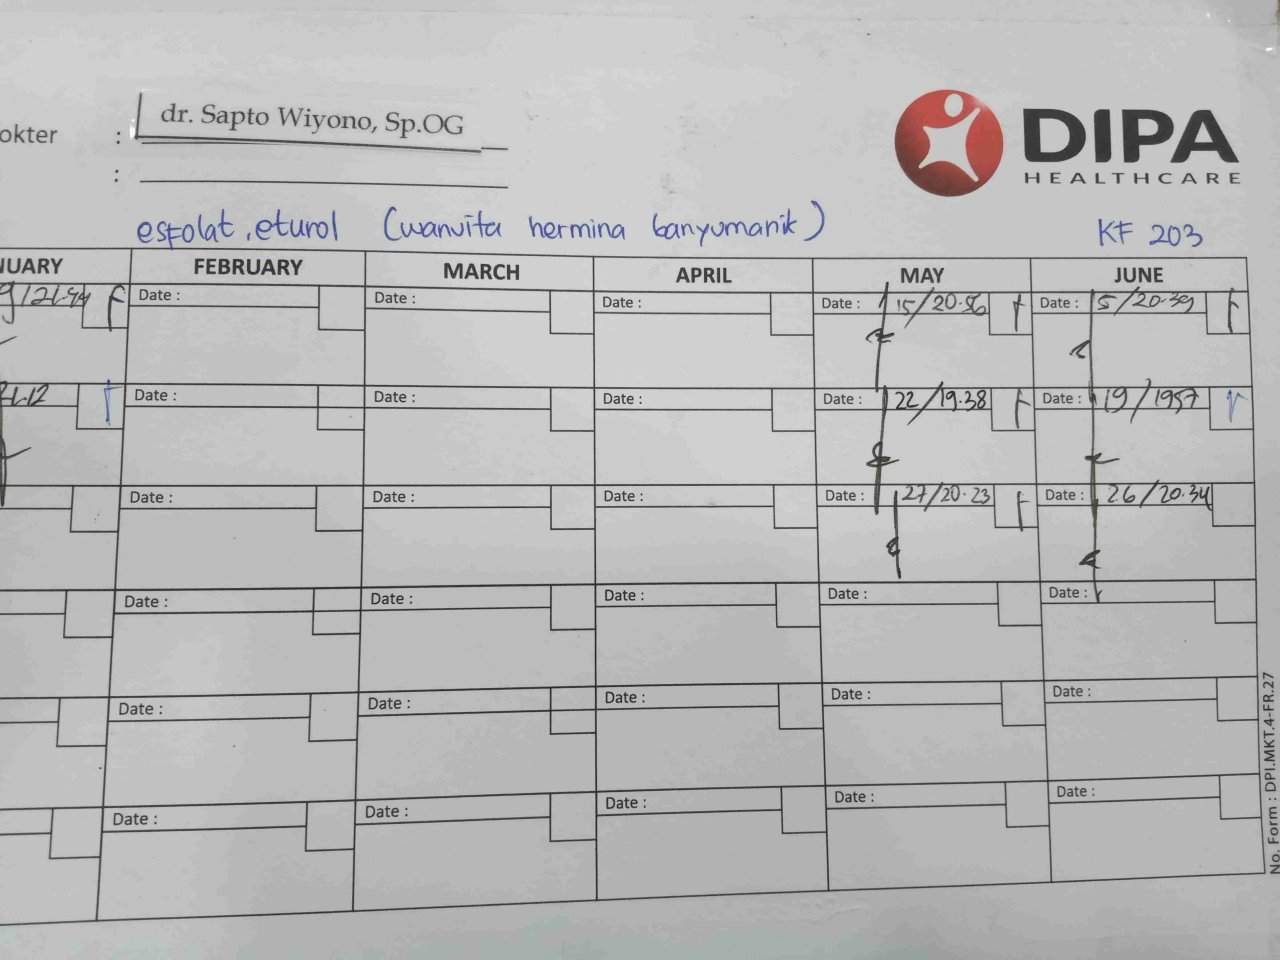 okter : dr. Sapto Wiyono, Sp.OG
:
DIPA
HEALTHCARE
esfolat, eturol (wanvita hermina banyumanik) KF 203
NUARY FEBRUARY MARCH APRIL MAY JUNE
9/21.44 Date : Date : Date : Date : 15/20.56 Date : 5/20.39
21.12 Date : Date : Date : Date : 22/19.38 Date : 19/1957
Date : Date : Date : Date : 27/20.23 Date : 26/20.34
Date : Date : Date : Date : Date :
Date : Date : Date : Date : Date :
Date : Date : Date : Date : Date :
No. Form : DPI.MKT.4-FR.27